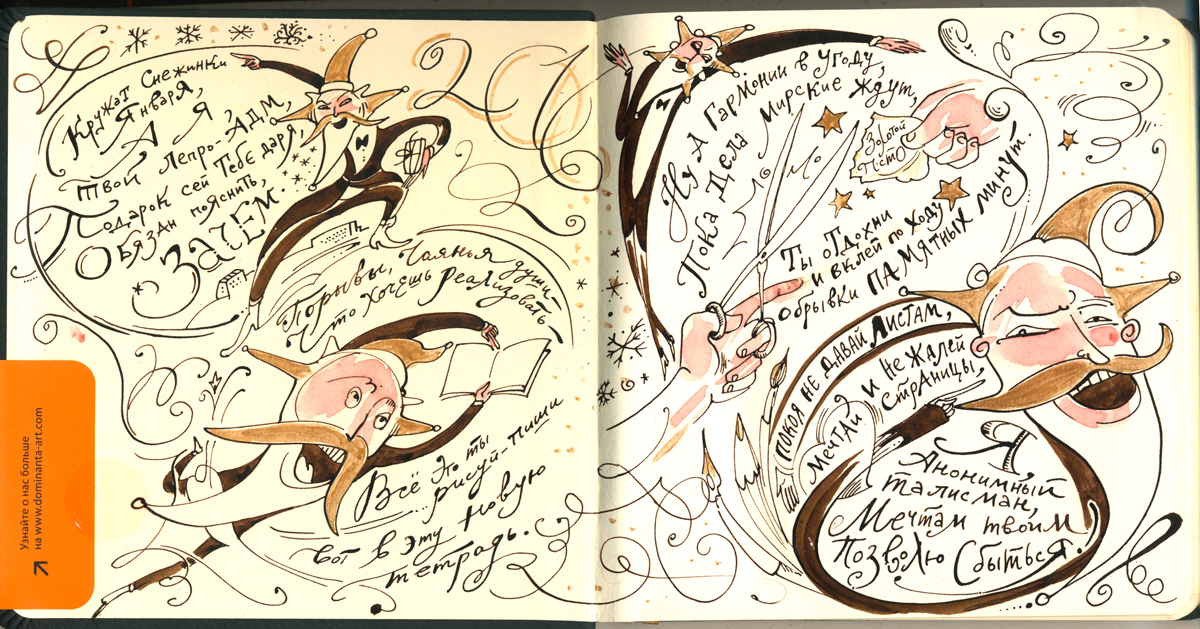 Кружат Снежинки
Января,
А Я,
Твой Лепро-АДМ,
Подарок сей Тебе даря,
Обязан пояснить,
Зачем.
Порывы, Чаянья души –
то хочешь Реализовать –
Всё это ты
рисуй-пиши
вот в эту новую
тетрадь.
Узнайте о нас больше
на www.dominanta-art.com
Ну а Гармонии в угоду,
Пока Дела Мирские ждут,
Золотой
Ты отдохни
и вклей по ходу
обрывки ПАМЯТНЫХ минут.
Покоя не давай Листам,
Мечтай и не жалей
страницы,
Я,
Анонимный
талисман,
Мечтам твоим
Позволю Сбыться.